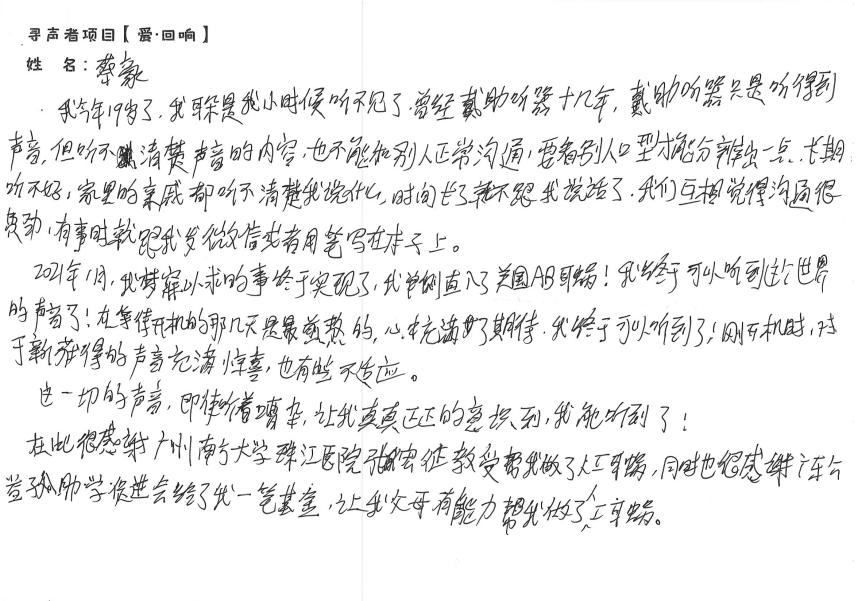 寻声者项目【爱·回响】
姓 名：蔡豪
我今年19岁了，我耳朵是我小时候听不见了，曾经戴助听器十几年，戴助听器只是听得到
声音，但听不清楚声音的内容，也不能和别人正常沟通，要看别人口型才能分辨出一点。长期
听不好，家里的亲戚都听不清楚我说什么，时间长了就不跟我说话了。我们互相觉得沟通很
费劲，有事时就跟我发微信或者用笔写在本子上。
2021年1月，我梦寐以求的事终于实现了，我单侧植入了美国AB耳蜗！我终于可以听到这个世界
的声音了！在等待开机的那几天是最煎熬的，心中充满了期待，我终于可以听到了！刚开机时，对
于新获得的声音充满惊喜，也有些不适应。
这一切的声音，即使听着嘈杂，让我真真正正的意识到，我能听到了！
在此很感谢广州南方大学珠江医院张宏征教授帮我做了人工耳蜗，同时也很感谢广东公
益助学促进会给了我一笔基金，让我父母有能力帮我做了人工耳蜗。